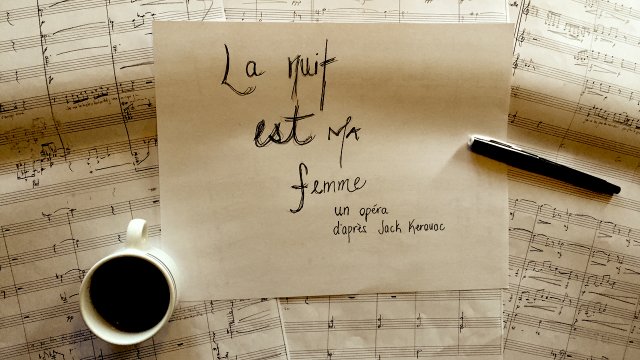 La nuit
est MA
femme
un opéra
d'après Jack Kerouac